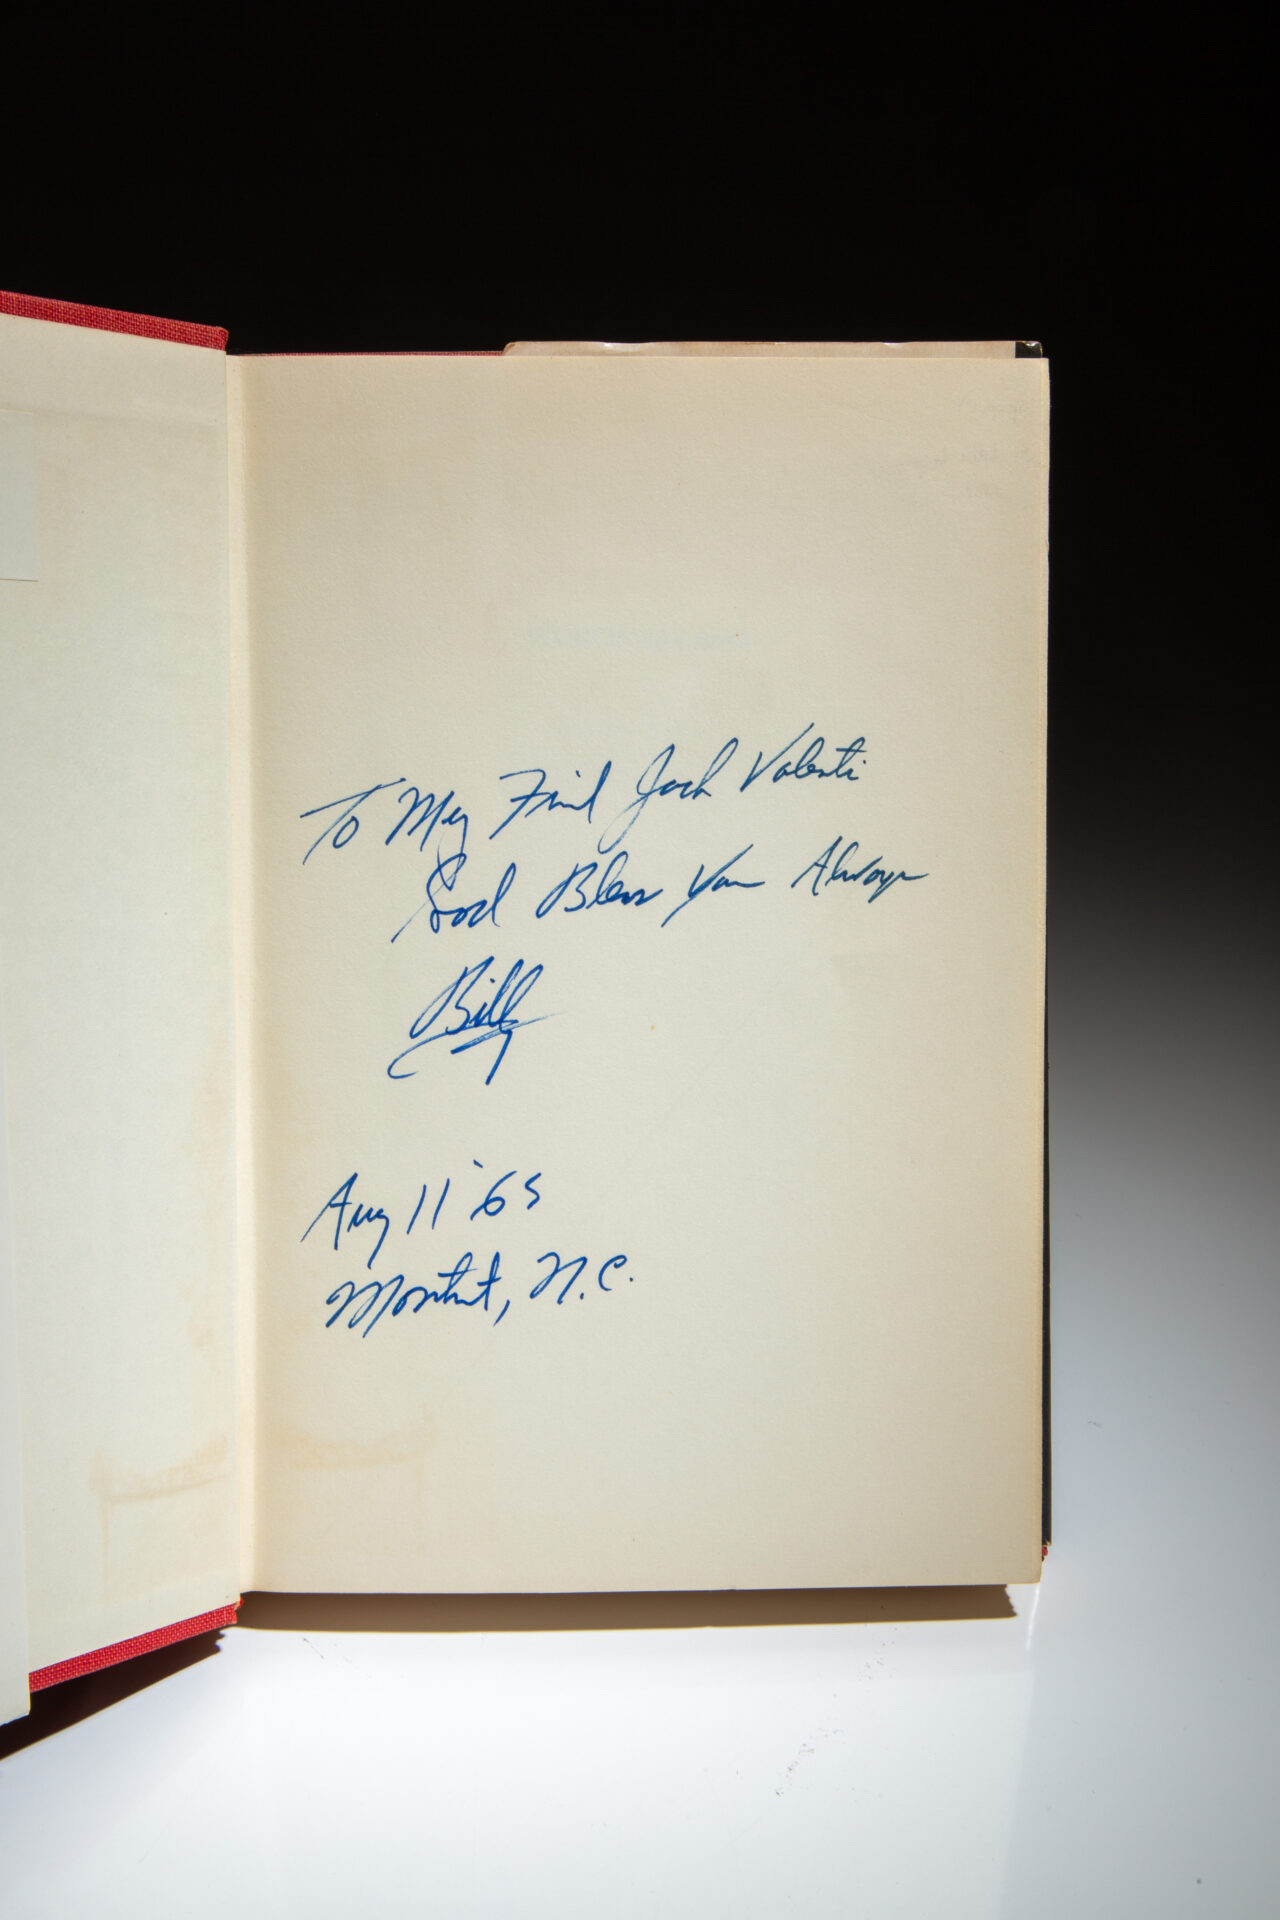 To My Friend Jack Valenti
God Bless You Always
Billy
Aug 11 '65
Montreat, N.C.